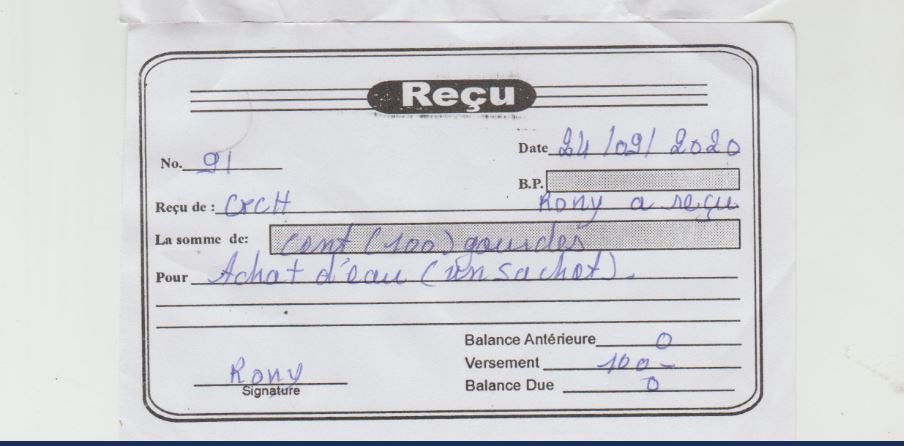 Reçu
Date 24/09/2020
No. 91
B.P.
Reçu de : CrcH Rony a reçu
La somme de: Cent (100) gourdes
Pour Achat d'eau (un sachet).
Balance Antérieure 0
Versement 100-
Balance Due 0
Rony
Signature